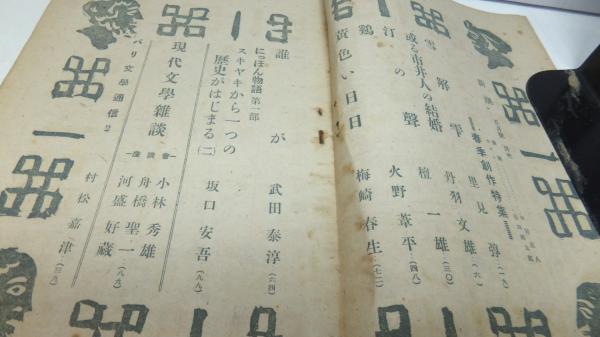 春季創作特集
或る市井人の結婚 里見弴 (一九)
雪解雫 丹羽文雄 (六)
汀の聲 檀一雄 (三〇)
鶏 火野葦平 (四八)
黄色い日日 梅崎春生 (七二)
誰が 武田泰淳 (六四)
にっぽん物語 第一部
スキヤキから一つの
歴史がはじまる (二) 坂口安吾 (八八)
現代文學雑談
座談會
小林秀雄
舟橋聖一
河盛好蔵 (八八)
パリ文學通信2 村松嘉津 (三八)